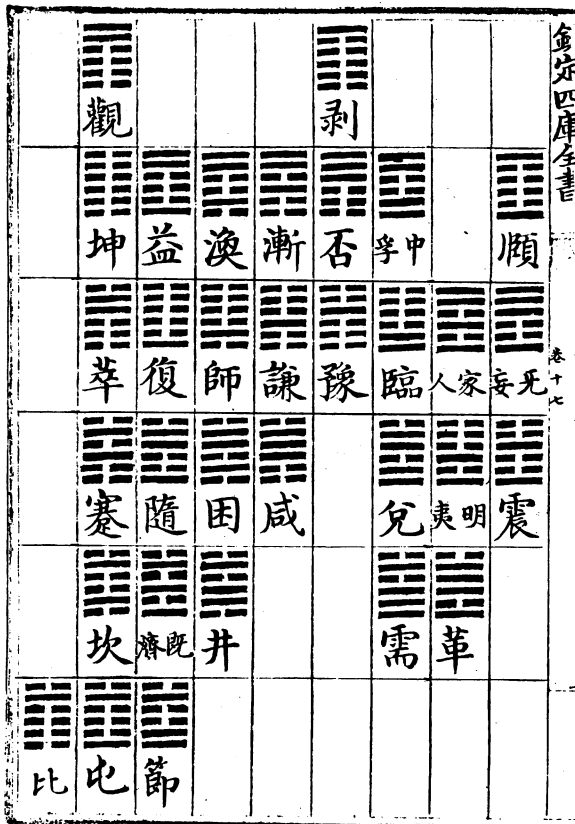 欽定四庫全書
卷十七
剥 觀
頤 中孚 否 漸 渙 益 坤
无妄 家人 臨 豫 謙 師 復 萃
震 明夷 兌 咸 困 隨 蹇
革 需 井 既濟 坎
節 屯 比